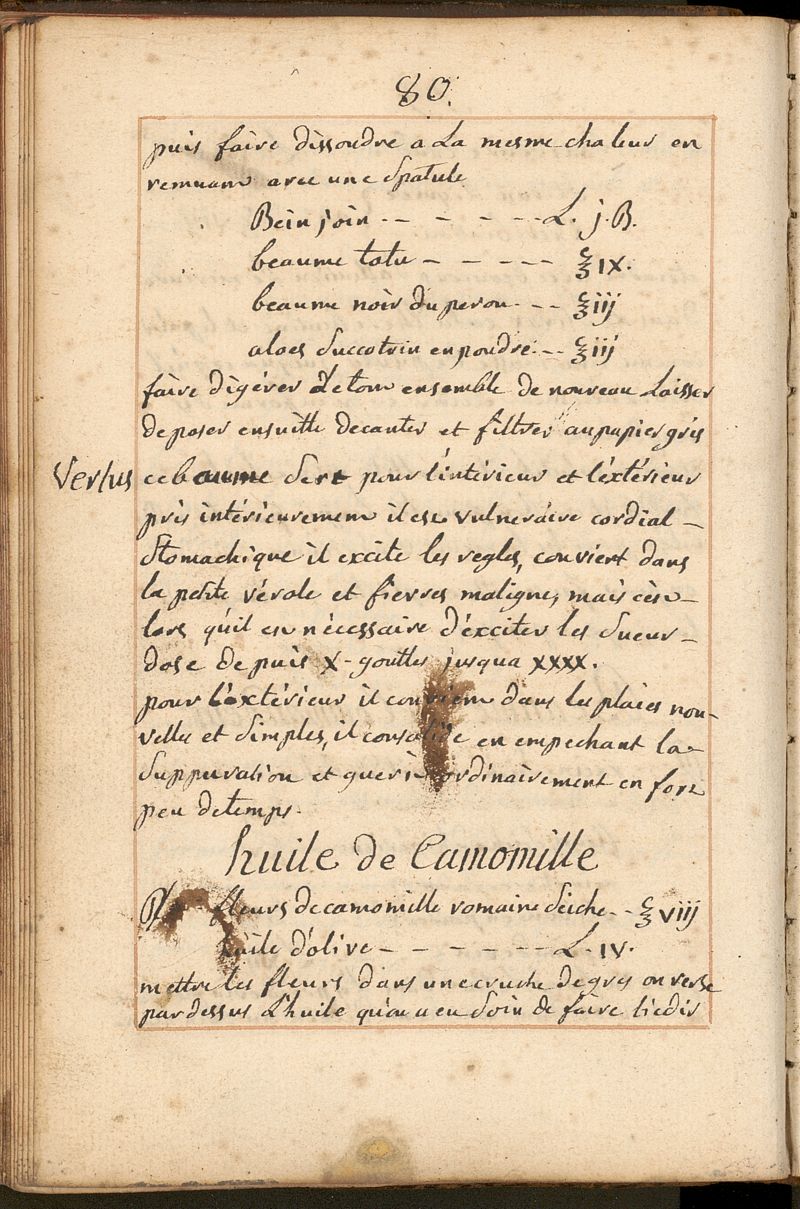 80.
puis faire dissoudre a La mesme chaleur en
remuant avec une Spatule
Beinjoin - - - - - L. j. B.
beaume totu - - - - - ℥ IX.
beaume noir du perou - - - ℥ iij
aloes Succotrin en poudre - - ℥ iij
faire digérer Letout ensemble de nouveau Laisser
deposer ensuitte decanter et filtrer au papier gris
Vertus
ce baume Sert pour l'intérieur et l'extérieur
pris intérieurement il est vulneraire cordial -
Stomachique il excite les regles, convient dans
la petite vérole et fievres maligne, mais cest -
lors qu'il est nécessaire d'éxciter les Sueur -
dose depuis X - gouttes jusqua XXXX.
pour l'extérieur il convient dans les plaies nou-
velles et Simples, il consolide en empechant la -
Suppuration et guerit ordinairement en fort
peu detemps.
huile de Camomille
♃ fleurs de camomille romaine Seiche - - ℥ viij
huile d'olive - - - - - - L. IV.
mettre les fleurs dans une cruche de grés on verse
par dessus L'huile qu'on a eu Soin de faire tiedir